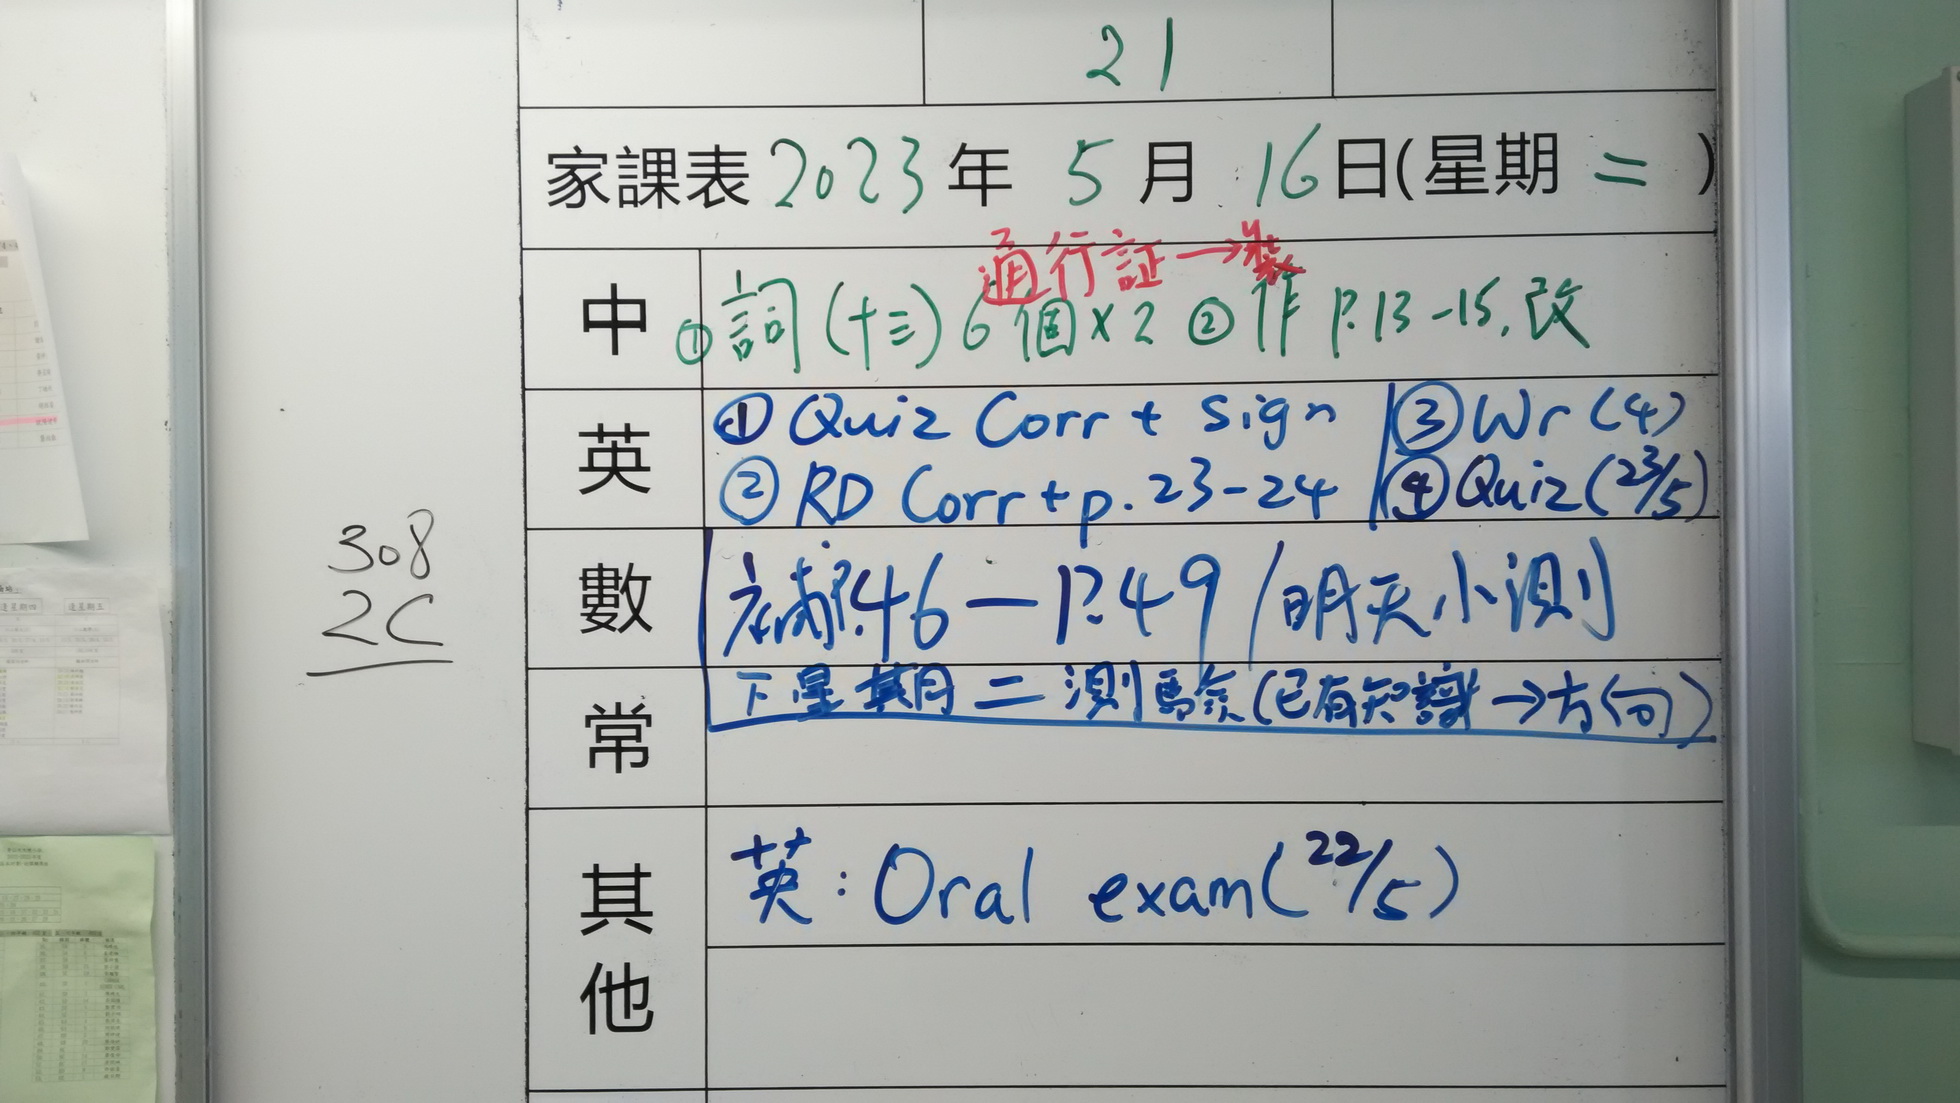 21
家課表 2023 年 5 月 16 日(星期 二 )
通行証→
中 ①詞(十三) 6個×2 ②作 P.13-15, 改
英 ① Quiz Corr + Sign ③ Wr (4)
② RD Corr + p. 23-24 ④ Quiz (23/5)
數 補P.46—P.49/明天小測
下星期二測驗(已有知識→方(向))
常
其他 英: Oral exam (22/5)
308
2C
逢星期四 逢星期五